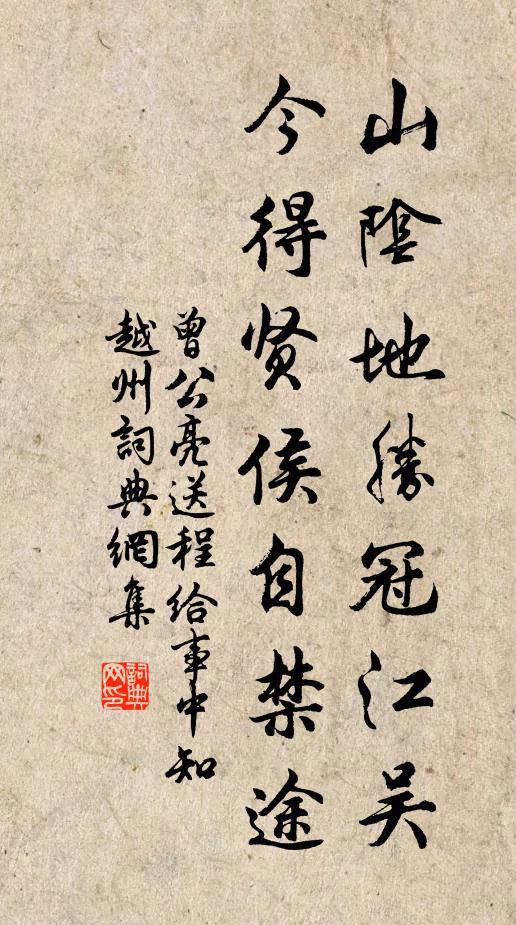 山陰地勝冠江吴
今得贤侯自禁途
曾公亮送程给事中知
越州詞典網集
詞典网印